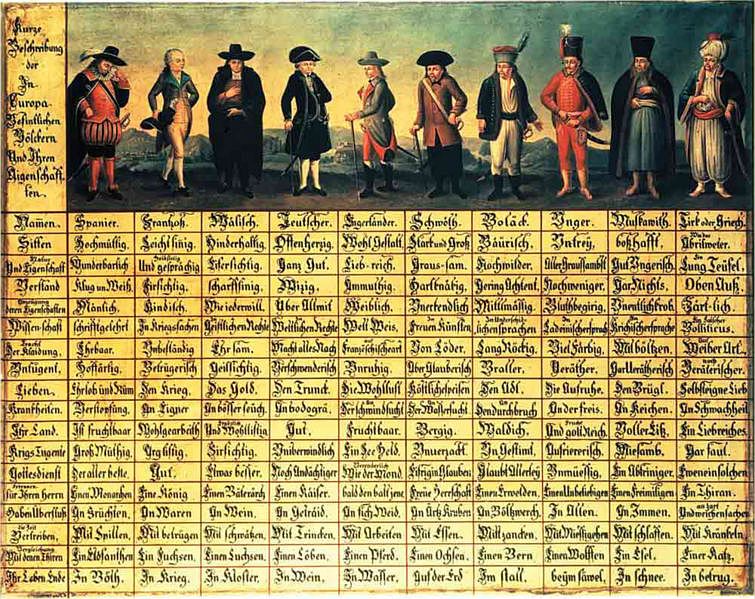 Kurze
Beschreibung
der
In
Europa
Befintlichen
Völckern
Und Ihren
Aigenschaff
ten.
Namen. Spanier. Frantzoß. Wälisch. Teutscher. Engerländer. Schwöth. Boläck. Vnger. Muskawith. Tirk oder Griech.
Sitten Hochmüttig. Leicht sinig. Hinderhaltig. Offenherzig. Wohl Gestalt. Stark und Groß Bäurisch. Vntrey, boßhafft. Abrilweter.
Und Eigenschaft Wunderbarlich Und gesprächig Eifersichtig. Ganz Gut. Lieb-reich. Graus-sam. Hochwilder. Aller Grausambst. Gut Vngerisch. Lung Teüfel.
Verstand Klug un Weiß. Firsichtig. scharffsinig. Witzig. Ammuthig. Hartknätig. Gering Achtent. Nochweniger. Gar Nichts. Oben Auß.
deren Eigenschaften Mänlich. Kindisch. Wie iederwill. Über Allmit Weiblich. Unerkendlich Mittlmäsig. Bluthbegirig. Vnentlichkrob. Zärt-lich.
Wissenschaft schrifftgelehrt In Kriegssachen Geistlichen Rechte Weltlichen Rechte Welt Weis. Freuen Künsten lichensprachen Ladeinischersprach Krichischersprache Bolliticus.
Der Klaidung. Ehrbaar. Vnbeständig Ehr sam. Macht alles Nach Französchische art Von Löder. Lang Röckig. Viel Färbig. Mit böltzen. Weiber Art.
Vntugent. Hoffärtig. Betrügerisch Geillsichtig. Verschwenderisch Vnruhig. Aber Glauberisch Braller. Veräther. Gar Verätherisch. Verälterischer.
Lieben. Ehrlob und Rüm Den Krieg. Das Gold. Den Trunck. Die Wohllust Köstlichespeisen Den Adl. Die Aufruhe. Den Brügl. Selbsteigne Lieb
Krankheiten. Verstopfung. An Eigner An bösser seüch. An bodogrä. Der schwindsucht Der Wassersucht Den durchbruch An der freis. An Keichen. An Schwachheit
Ihr Land. Ist fruchtbaar Wohlgearbaith Und Wohllistig Gut. Fruchtbaar. Bergig. Waldich. Und goll Reich. Voller Eiß. Ein Liebreiches
Krigs Tugente Groß Müthig. Arg listig. Firsichtig. Vniberwindlich Ein See Held. Vnuerzackt. Vn Gestimt. Aufriererisch. Miesamb. Gar faul.
Gottesdienst Der aller beste. Gut. Etwas besser. Noch Andächtiger Wie der Mond. Eifrig in Glauben Glaubt Allerley Vnmüessig. Ein Abtriniger. Eweneinsolchen
für Ihren herrn Einen Monarchen Eine König Einen Bäterärch Einen Kaiser. bald den balt jene Freüe Herrschaft Einen Erwelden. Einen Unbeliebigen Einen Freimiligen Ein Thiran.
Haben Uberfluß An Früchten. An Waren An Wein. An Getraid. An fich Weid. An Ärtz Kruben An Böltzwerch. In Allen. An Immen. Und weichen sachen
Vertreiben. Mit Spillen. Mit betrügen Mit schwätzen. Mit Trincken. Mit Arbeiten Mit Essen. Mit zancken. Mit Müessigehen Mit schlaffen. Mit Kränkeln
Mit denen Thiren Ein Elofanthen Ein Fuchsen. Einen Luchsen. Einen Löben. Einen Pferd. Einen Ochsen. Einen Bern Einen Wolffen Ein Esel. Einer Katz.
Ihr Leben Ende In Böth. In Krieg. In Kloster. In Wein. In Wasser. Auf der Erd In stall. beÿm säwel. In schnee. In betrug.